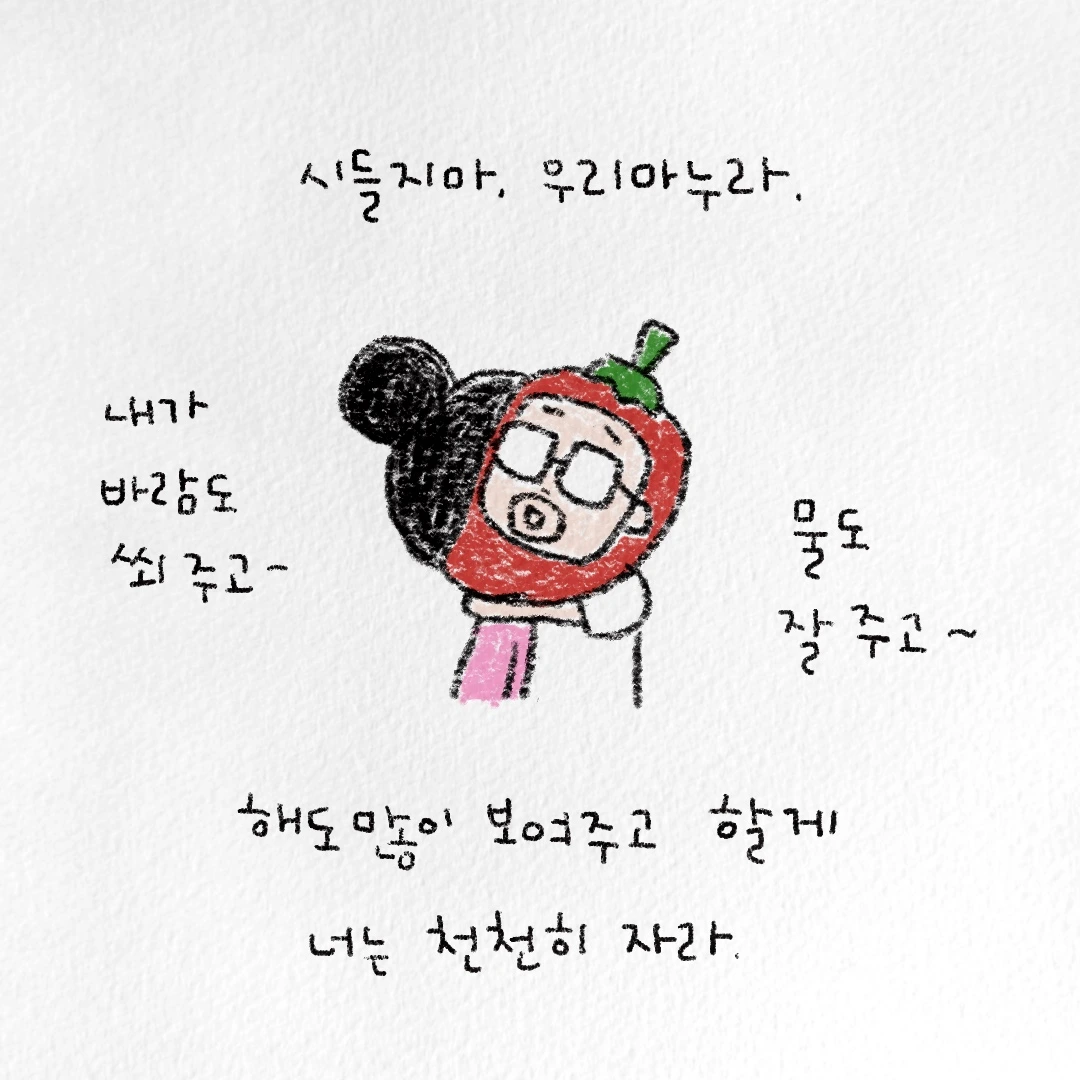 시들지마, 우리마누라.
내가
바람도
쐬 주고~
물도
잘 주고~
해도 많이 보여주고 할게
너는 천천히 자라.